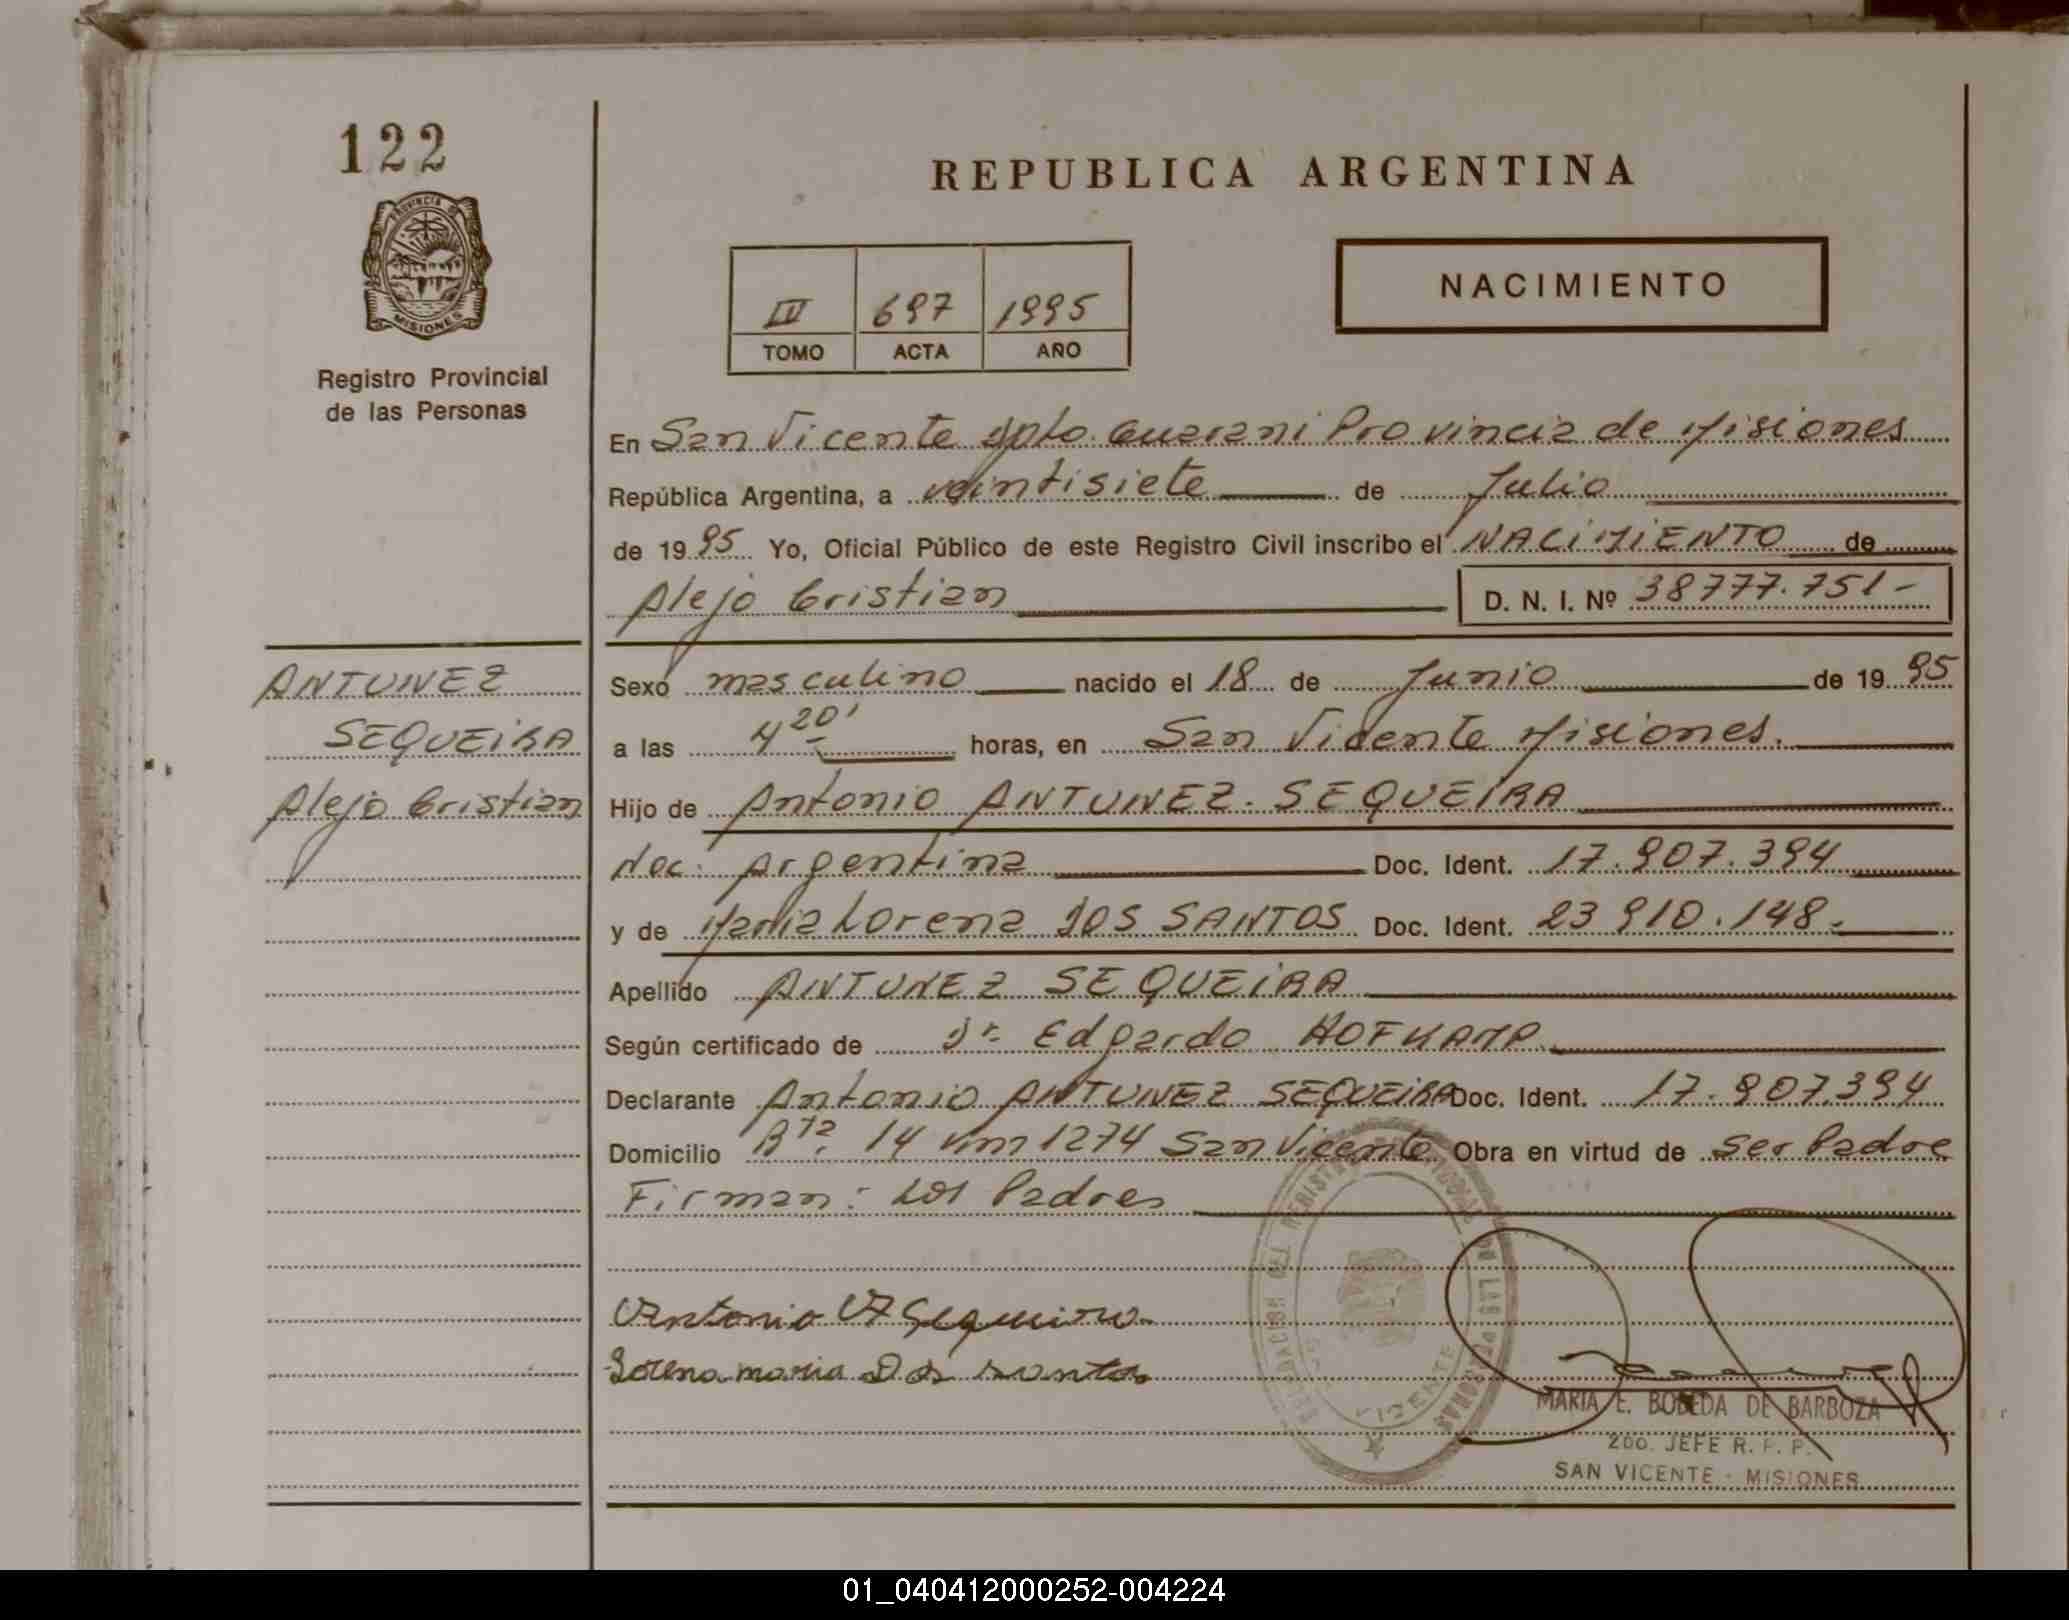 122
PROVINCIA DE
MISIONES
Registro Provincial
de las Personas
REPUBLICA ARGENTINA
NACIMIENTO
IV 697 1995
TOMO ACTA AÑO
En San Vicente Dpto. Guarani Provincia de Misiones
República Argentina, a veintisiete de Julio
de 1995 Yo, Oficial Público de este Registro Civil inscribo el NACIMIENTO de
Alejo Cristian D. N. I. Nº 38777.751-
ANTUNEZ
SEQUEIRA
Alejo Cristian
Sexo masculino nacido el 18 de Junio de 1995
a las 4 20' horas, en San Vicente Misiones.
Hijo de Antonio ANTUNEZ. SEQUEIRA
Nac: Argentina Doc. Ident. 17.907.394
y de Maria Lorena DOS SANTOS Doc. Ident. 23 910.148.
Apellido ANTUNEZ SEQUEIRA
Según certificado de Dr. Edgardo HOFKAMP
Declarante Antonio ANTUNEZ SEQUEIRA Doc. Ident. 17.907.394
Domicilio Rta. 14 km 1274 San Vicente Obra en virtud de ser Padre
Firman: Los Padres
Antonio A Sequeira
Lorena maria Dos santos
DELEGACION DEL REGISTRO PROVINCIAL DE LAS PERSONAS
VICENTE
MARIA E. BOBEDA DE BARBOZA
2DO. JEFE R. P. P.
SAN VICENTE - MISIONES
01_040412000252-004224